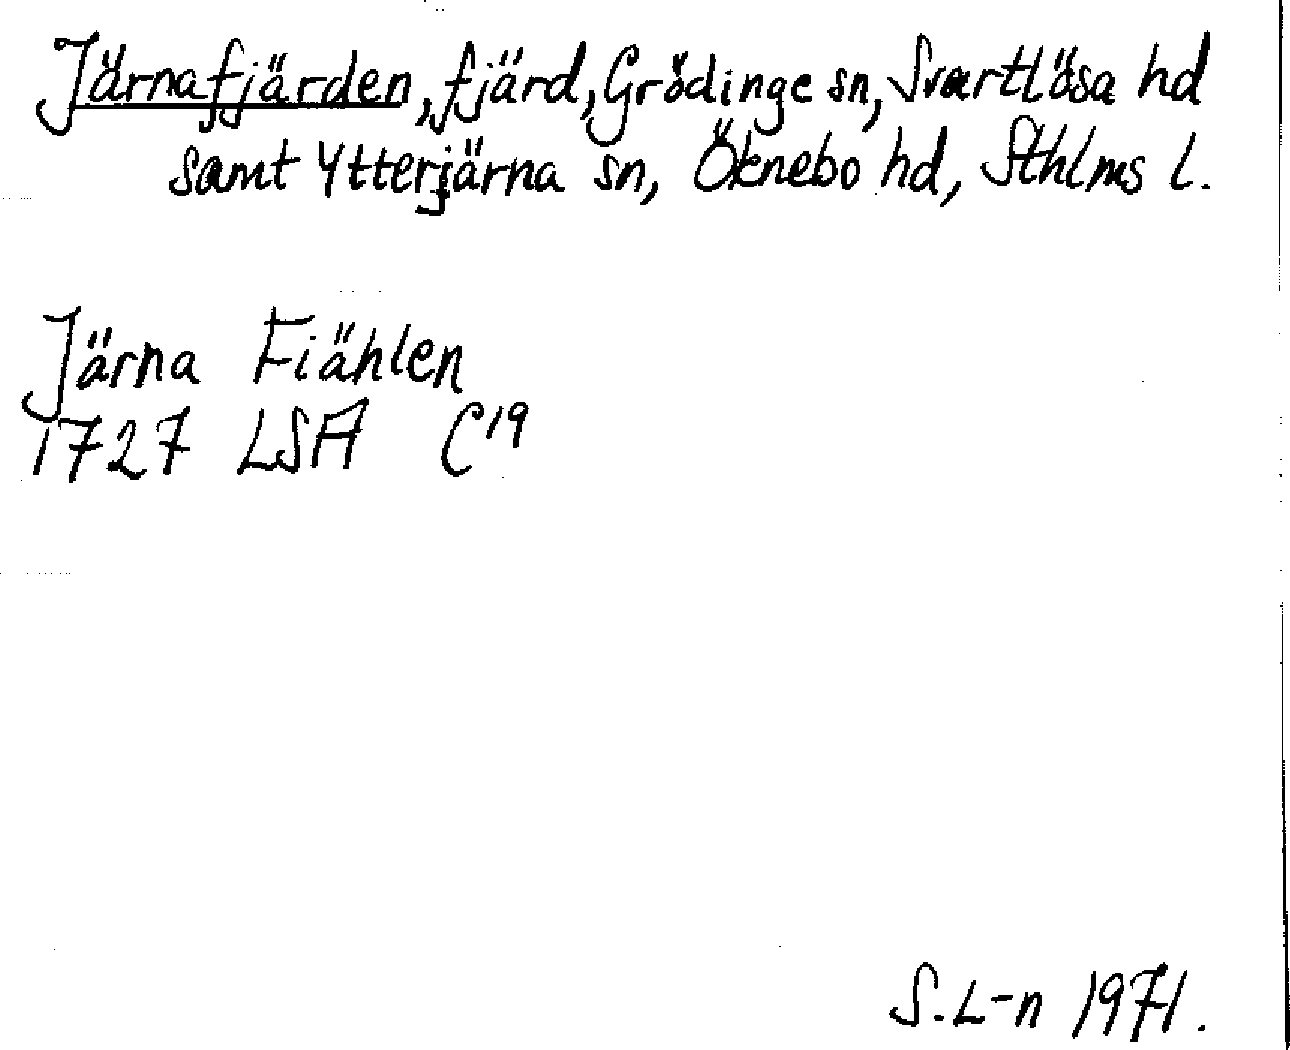 Järnafjärden, fjärd, Grödinge sn, Svartlösa hd
samt Ytterjärna sn, Öknebo hd, Sthlms l.
Järna Fiählen
1727 LSA C19
S. L-n 1971.